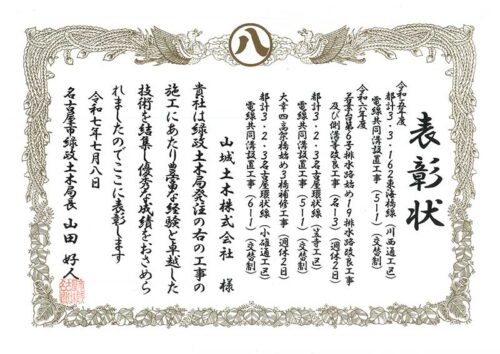 八
表彰状
令和五年度
都計3・3・162東海橋線(川西通工区)
電線共同溝設置工事(5-1)(交替制)
令和六年度
若草台第6号排水路始め19排水路改良工事
及び側溝等改良工事(名-3)(週休2日)
都計3・2・3名古屋環状線(笠寺工区)
電線共同溝設置工事(5-1)(交替制)
大幸四高架橋始め3橋補修工事(週休2日)
都計3・2・3名古屋環状線(小碓通工区)
電線共同溝設置工事(6-1)(交替制)
山城土木株式会社 様
貴社は緑政土木局発注の右の工事の
施工にあたり豊富な経験と卓越した
技術を結集し優秀な成績をおさめら
れましたのでここに表彰します
令和七年七月八日
名古屋市緑政土木局長 山田好人